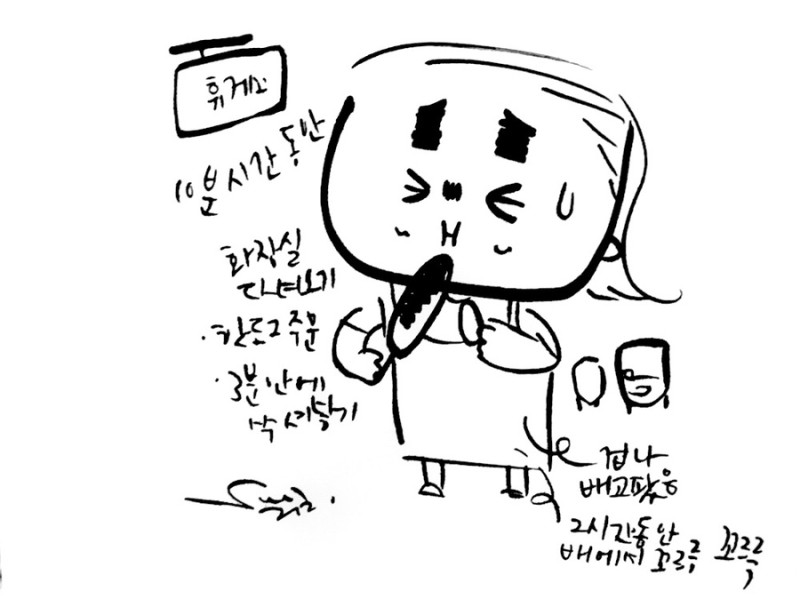 휴게소
10분 시간 동안
화장실
다녀오기
· 핫도그 주문
· 3분 안에
싹 헤치우기
겁나
배고팠음
2시간동안
배에서 꼬르륵 꼬르륵